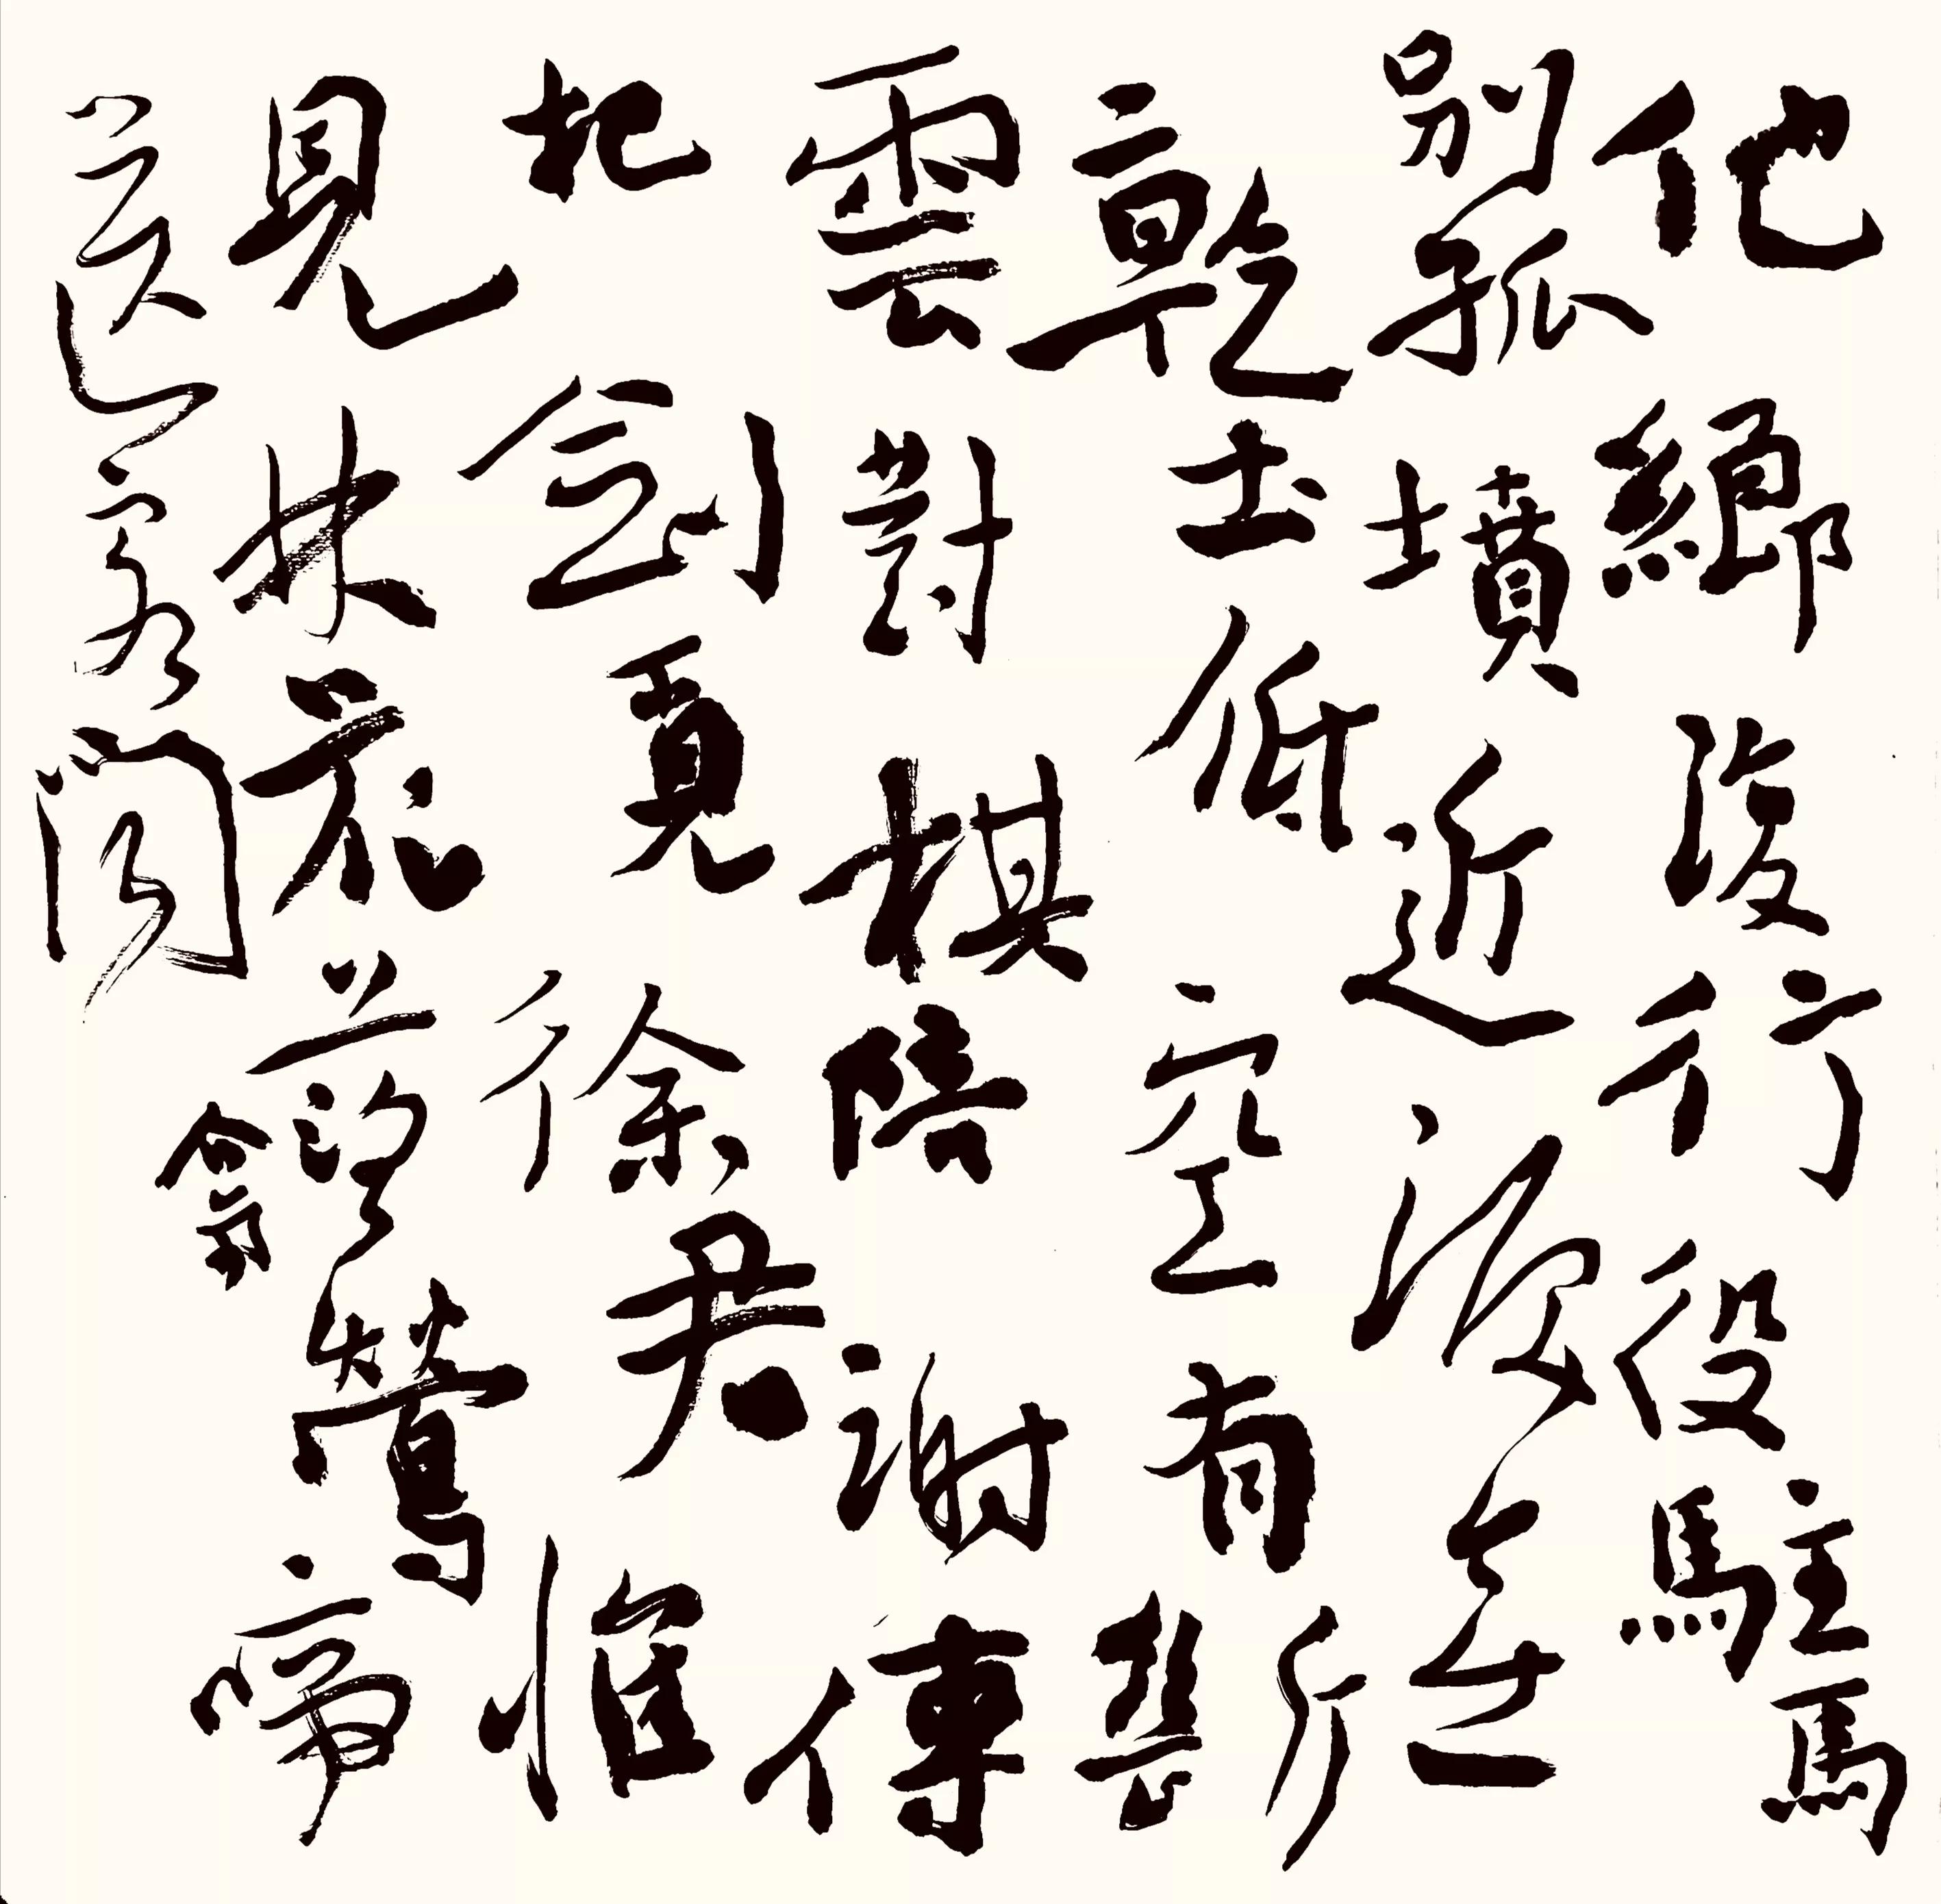 他鄉復行役駐馬
別孤墳近淚無
乾土低空有斷
雲對棋陪謝傅
把劍覓徐君惟
見林花落鶯啼
送客聞